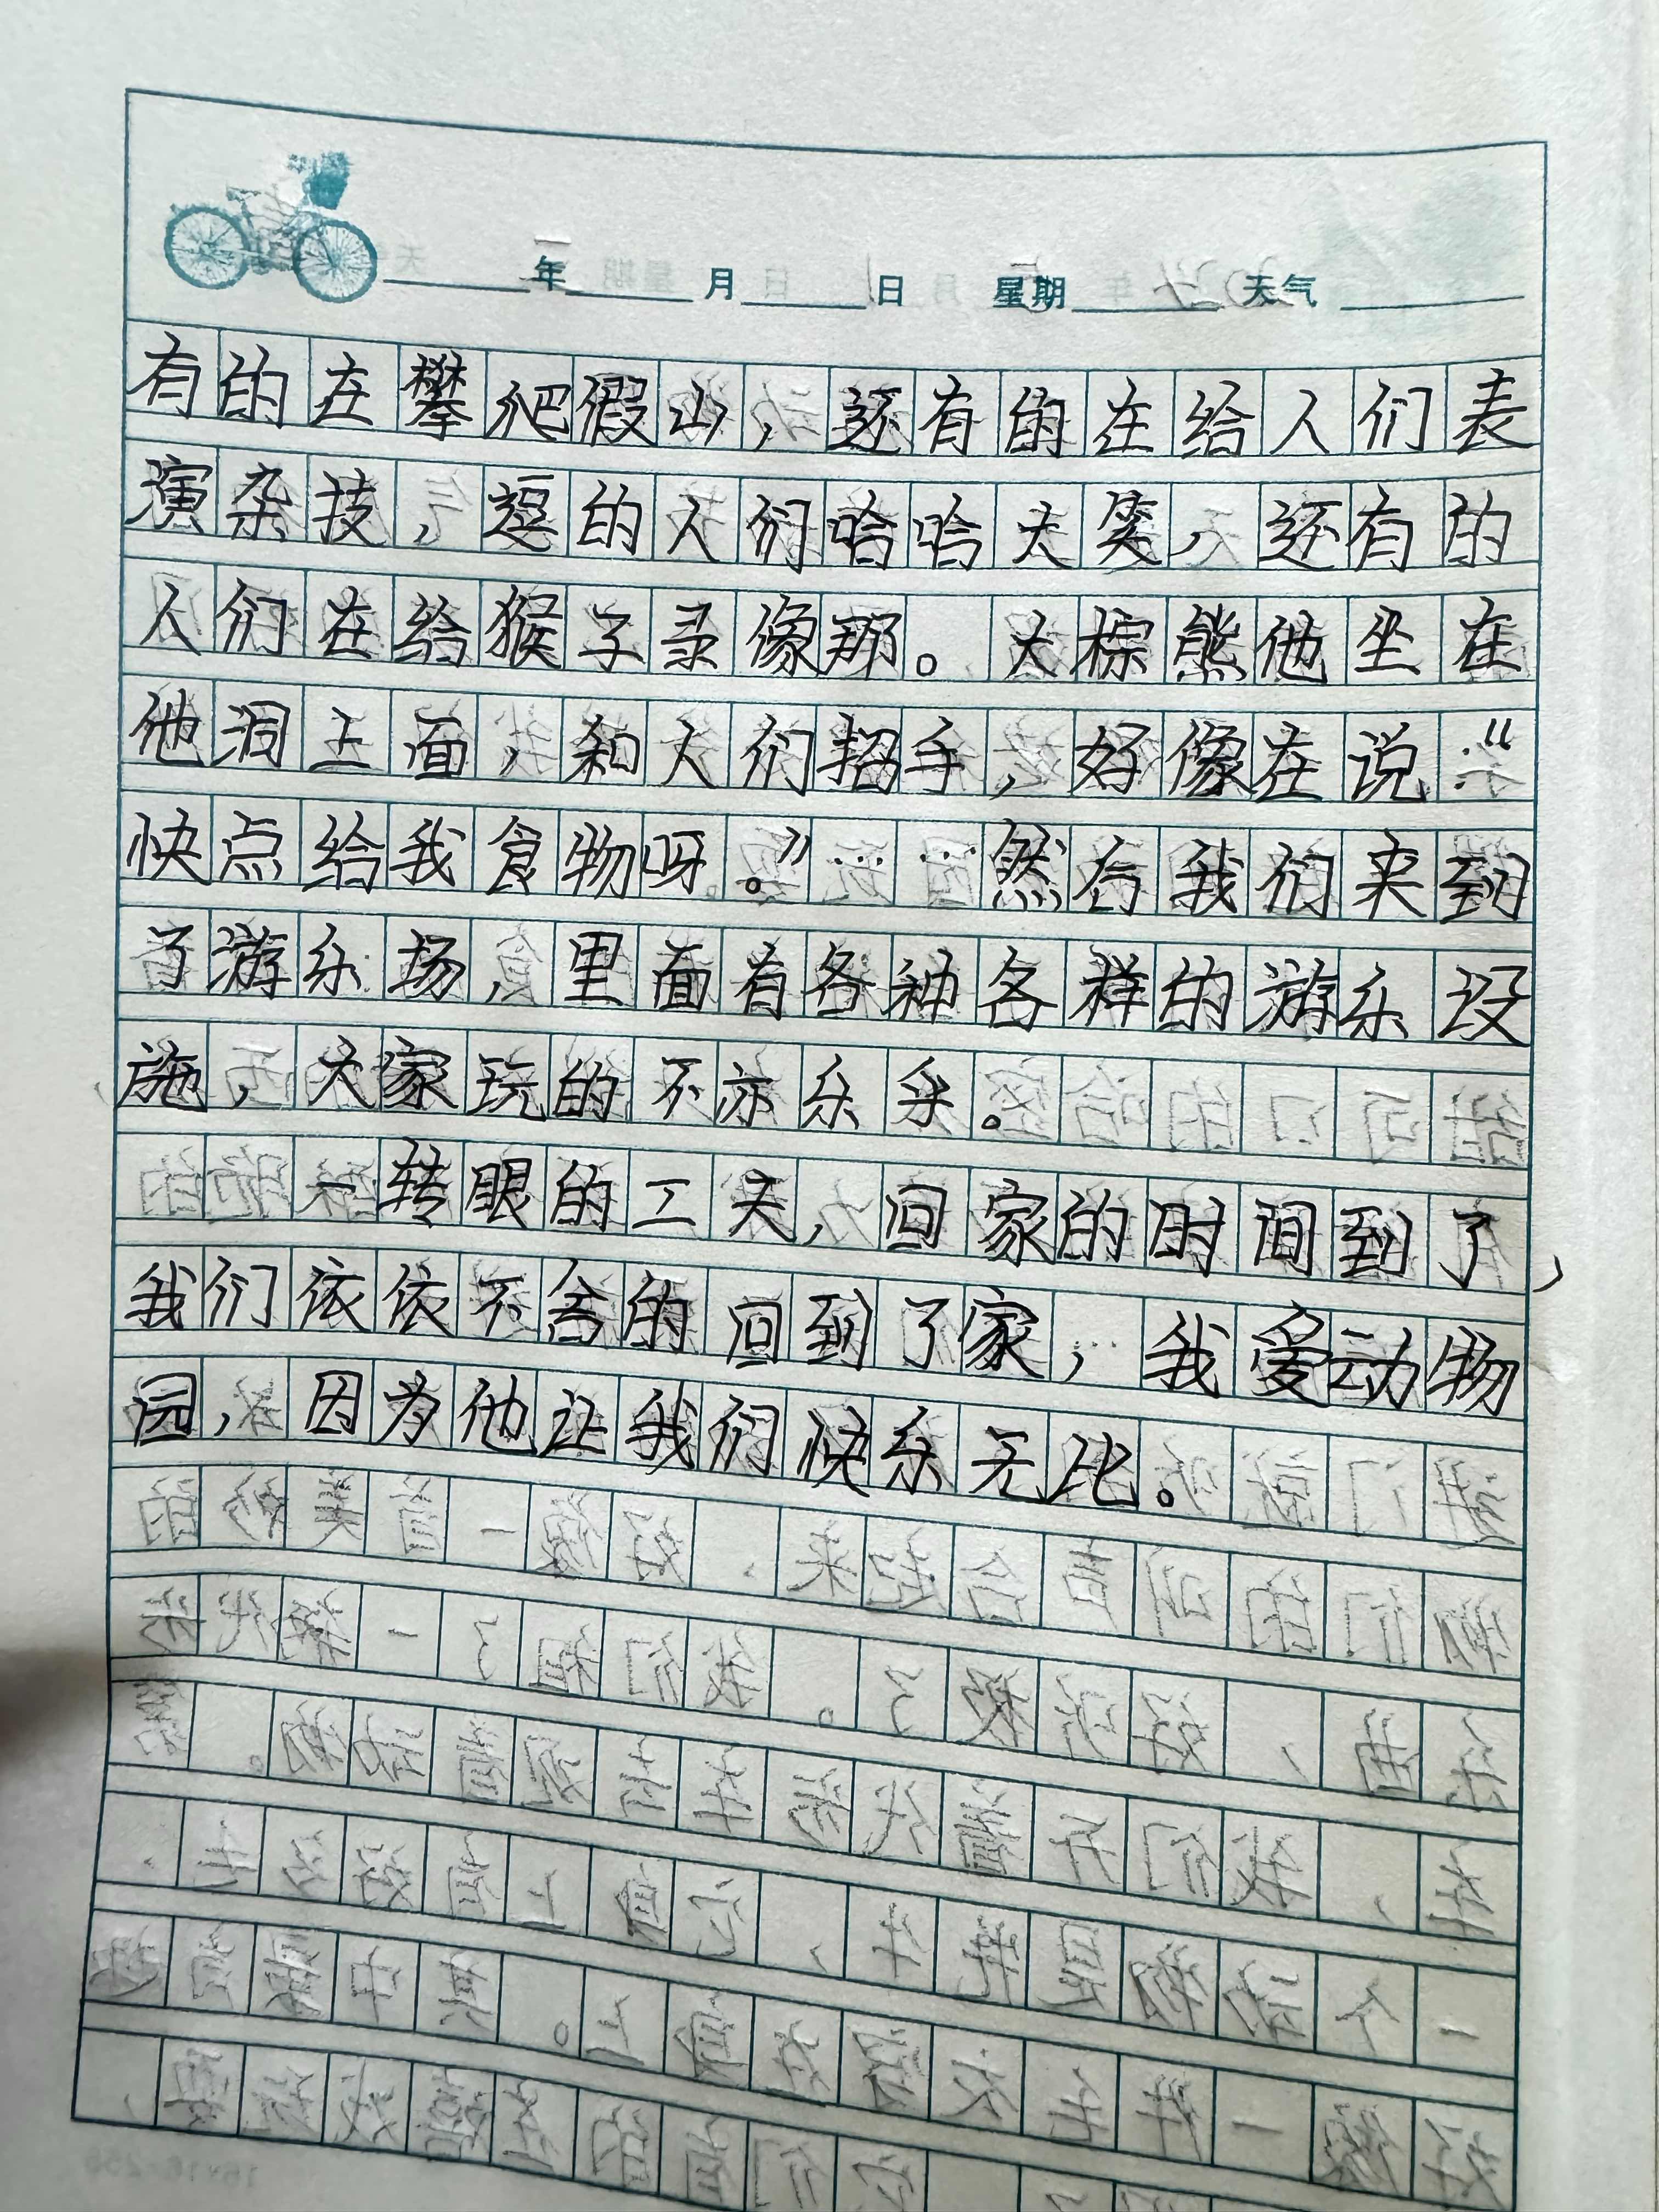 年 月 日 星期 天气
有的在攀爬假山，还有的在给人们表
演杂技，逗的人们哈哈大笑，还有的
人们在给猴子录像那。大棕熊他坐在
他洞上面，和人们招手，好像在说：“
快点给我食物呀。”……然后我们来到
了游乐场，里面有各种各样的游乐设
施，大家玩的不亦乐乎。
一转眼的工夫，回家的时间到了，
我们依依不舍的回到了家，我爱动物
园，因为他让我们快乐无比。